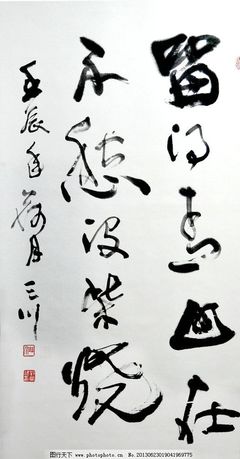 留得青山在
不愁没柴烧
壬辰年荷月三川
图行天下 PHOTOPHOTO.CN
www.photophoto.cn No.20130623019041969775